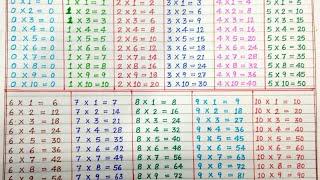 0 X 1 = 0
0 X 2 = 0
0 X 3 = 0
0 X 4 = 0
0 X 5 = 0
0 X 6 = 0
0 X 7 = 0
0 X 8 = 0
0 X 9 = 0
0 X 10 = 0
1 X 1 = 1
1 X 2 = 2
1 X 3 = 3
1 X 4 = 4
1 X 5 = 5
1 X 6 = 6
1 X 7 = 7
1 X 8 = 8
1 X 9 = 9
1 X 10 = 10
2 X 1 = 2
2 X 2 = 4
2 X 3 = 6
2 X 4 = 8
2 X 5 = 10
2 X 6 = 12
2 X 7 = 14
2 X 8 = 16
2 X 9 = 18
2 X 10 = 20
3 X 1 = 3
3 X 2 = 6
3 X 3 = 9
3 X 4 = 12
3 X 5 = 15
3 X 6 = 18
3 X 7 = 21
3 X 8 = 24
3 X 9 = 27
3 X 10 = 30
4 X 1 = 4
4 X 2 = 8
4 X 3 = 12
4 X 4 = 16
4 X 5 = 20
4 X 6 = 24
4 X 7 = 28
4 X 8 = 32
4 X 9 = 36
4 X 10 = 40
5 X 1 = 5
5 X 2 = 10
5 X 3 = 15
5 X 4 = 20
5 X 5 = 25
5 X 6 = 30
5 X 7 = 35
5 X 8 = 40
5 X 9 = 45
5 X 10 = 50
6 X 1 = 6
6 X 2 = 12
6 X 3 = 18
6 X 4 = 24
6 X 5 = 30
6 X 6 = 36
6 X 7 = 42
6 X 8 = 48
6 X 9 = 54
7 X 1 = 7
7 X 2 = 14
7 X 3 = 21
7 X 4 = 28
7 X 5 = 35
7 X 6 = 42
7 X 7 = 49
7 X 8 = 56
7 X 9 = 63
8 X 1 = 8
8 X 2 = 16
8 X 3 = 24
8 X 4 = 32
8 X 5 = 40
8 X 6 = 48
8 X 7 = 56
8 X 8 = 64
8 X 9 = 72
9 X 1 = 9
9 X 2 = 18
9 X 3 = 27
9 X 4 = 36
9 X 5 = 45
9 X 6 = 54
9 X 7 = 63
9 X 8 = 72
9 X 9 = 81
10 X 1 = 10
10 X 2 = 20
10 X 3 = 30
10 X 4 = 40
10 X 5 = 50
10 X 6 = 60
10 X 7 = 70
10 X 8 = 80
10 X 9 = 90